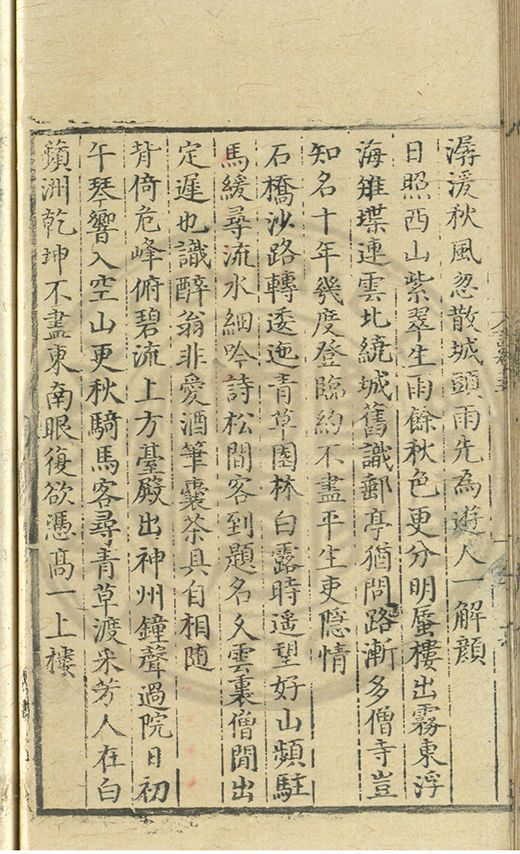 潺湲秋風忽散城頭雨先為遊人一解顏
日照西山紫翠生雨餘秋色更分明蜃樓出霧東浮
海雉堞連雲北繞城舊識郵亭猶問路漸多僧寺豈
知名十年幾度登臨約不盡平生吏隱情
石橋沙路轉逶迤青草園林白露時遥望好山頻駐
馬緩尋流水細吟詩松間客到題名久雲裏僧閒出
定遲也識醉翁非愛酒筆囊茶具自相隨
背倚危峰俯碧流上方臺殿出神州鐘聲過院日初
午琴響入空山更秋騎馬客尋青草渡采芳人在白
蘋洲乾坤不盡東南眼復欲憑高一上樓